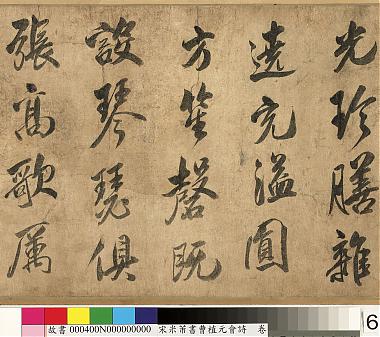 光珍膳雜
遶充溢圓
方笙磬既
設琴瑟俱
張高歌厲
故書 000400N000000000 宋米芾書曹植元會詩 卷
6